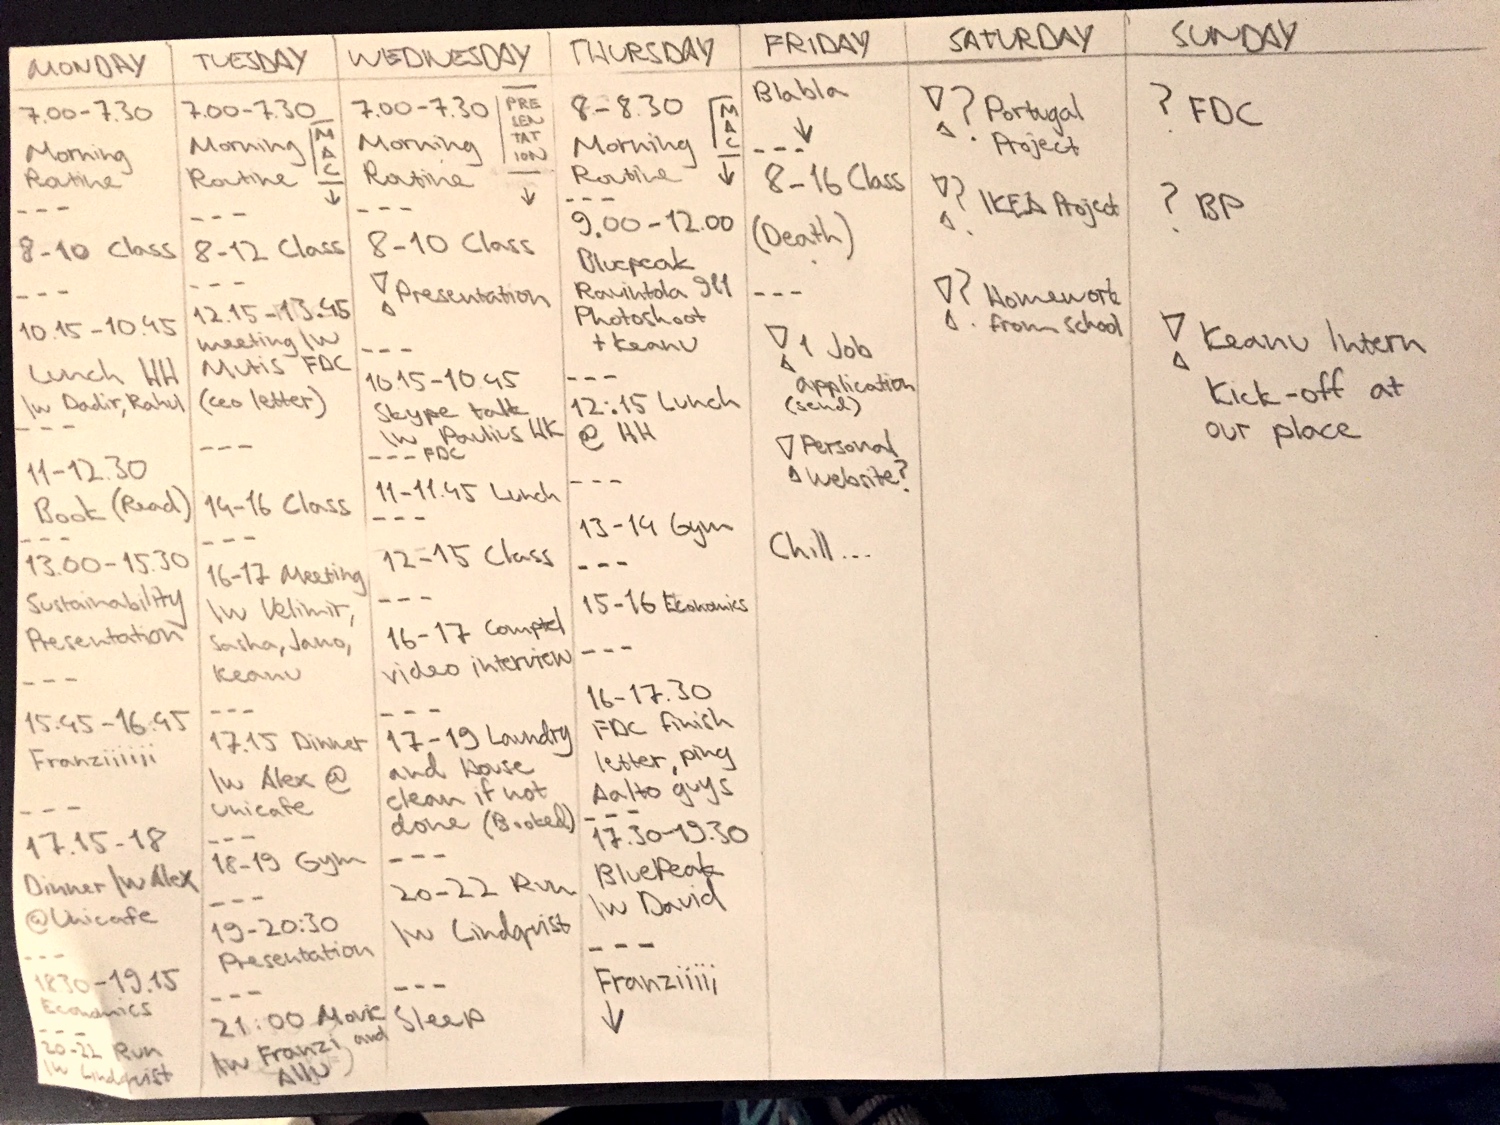 MONDAY
7.00-7.30
Morning
Routine
---
8-10 Class
---
10.15-10.45
Lunch HH
/w Dadir, Rahul
---
11-12.30
Book (Read)
---
13.00-15.30
Sustainability
Presentation
---
15.45-16.45
Franziiiiii
---
17.15-18
Dinner /w Alex
@Unicafe
---
1830-19.15
Economics
---
20-22 Run
/w Lindqvist
TUESDAY
7.00-7.30
Morning
Routine
MAC
---
8-12 Class
---
12.15-13.45
meeting /w
Mutis FDC
(ceo letter)
---
14-16 Class
---
16-17 Meeting
/w Velimir,
Sasha, Jano,
Keanu
---
17.15 Dinner
/w Alex @
Unicafe
---
18-19 Gym
---
19-20:30
Presentation
---
21:00 Movie
/w Franzi and
WEDNESDAY
7.00-7.30
Morning
Routine
PRE
SEN
TAT
ION
---
8-10 Class
Presentation
---
10.15-10.45
Skype talk
/w Paulius HK
--- FDC
11-11.45 Lunch
---
12-15 Class
---
16-17 Comptel
video interview
---
17-19 Laundry
and House
clean if not
done (Booked)
---
20-22 Run
/w Lindqvist
---
Sleep
THURSDAY
8-8.30
Morning
Routine
MAC
---
9.00-12.00
Bluepeak
Ravintola 911
Photoshoot
+ Keanu
---
12:15 Lunch
@ HH
---
13-14 Gym
---
15-16 Economics
---
16-17.30
FDC finish
letter, ping
Aalto guys
---
17.30-19.30
BluePeak
/w David
---
Franziiiii
↓
FRIDAY
Blabla
↓
---
8-16 Class
(Death)
---
1 Job
application
(send)
Personal
Website?
Chill...
SATURDAY
? Portugal
Project
? IKEA Project
? Homework
from school
SUNDAY
? FDC
? BP
Keanu Intern
Kick-off at
our place